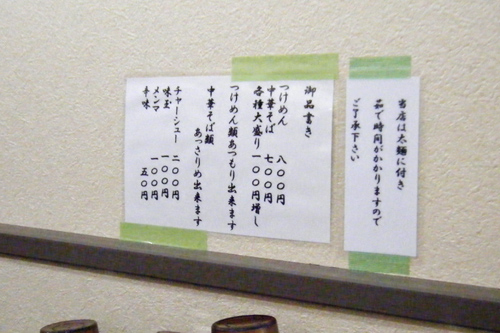 当店は太麺に付き
茹で時間がかかりますので
ご了承下さい
御品書き
つけめん 八〇〇円
中華そば 七〇〇円
各種大盛り 一〇〇円増し
つけめん類あつもり出来ます
中華そば類
あっさりめ出来ます
チャーシュー 二〇〇円
味玉 一〇〇円
メンマ 一〇〇円
辛味 五〇円